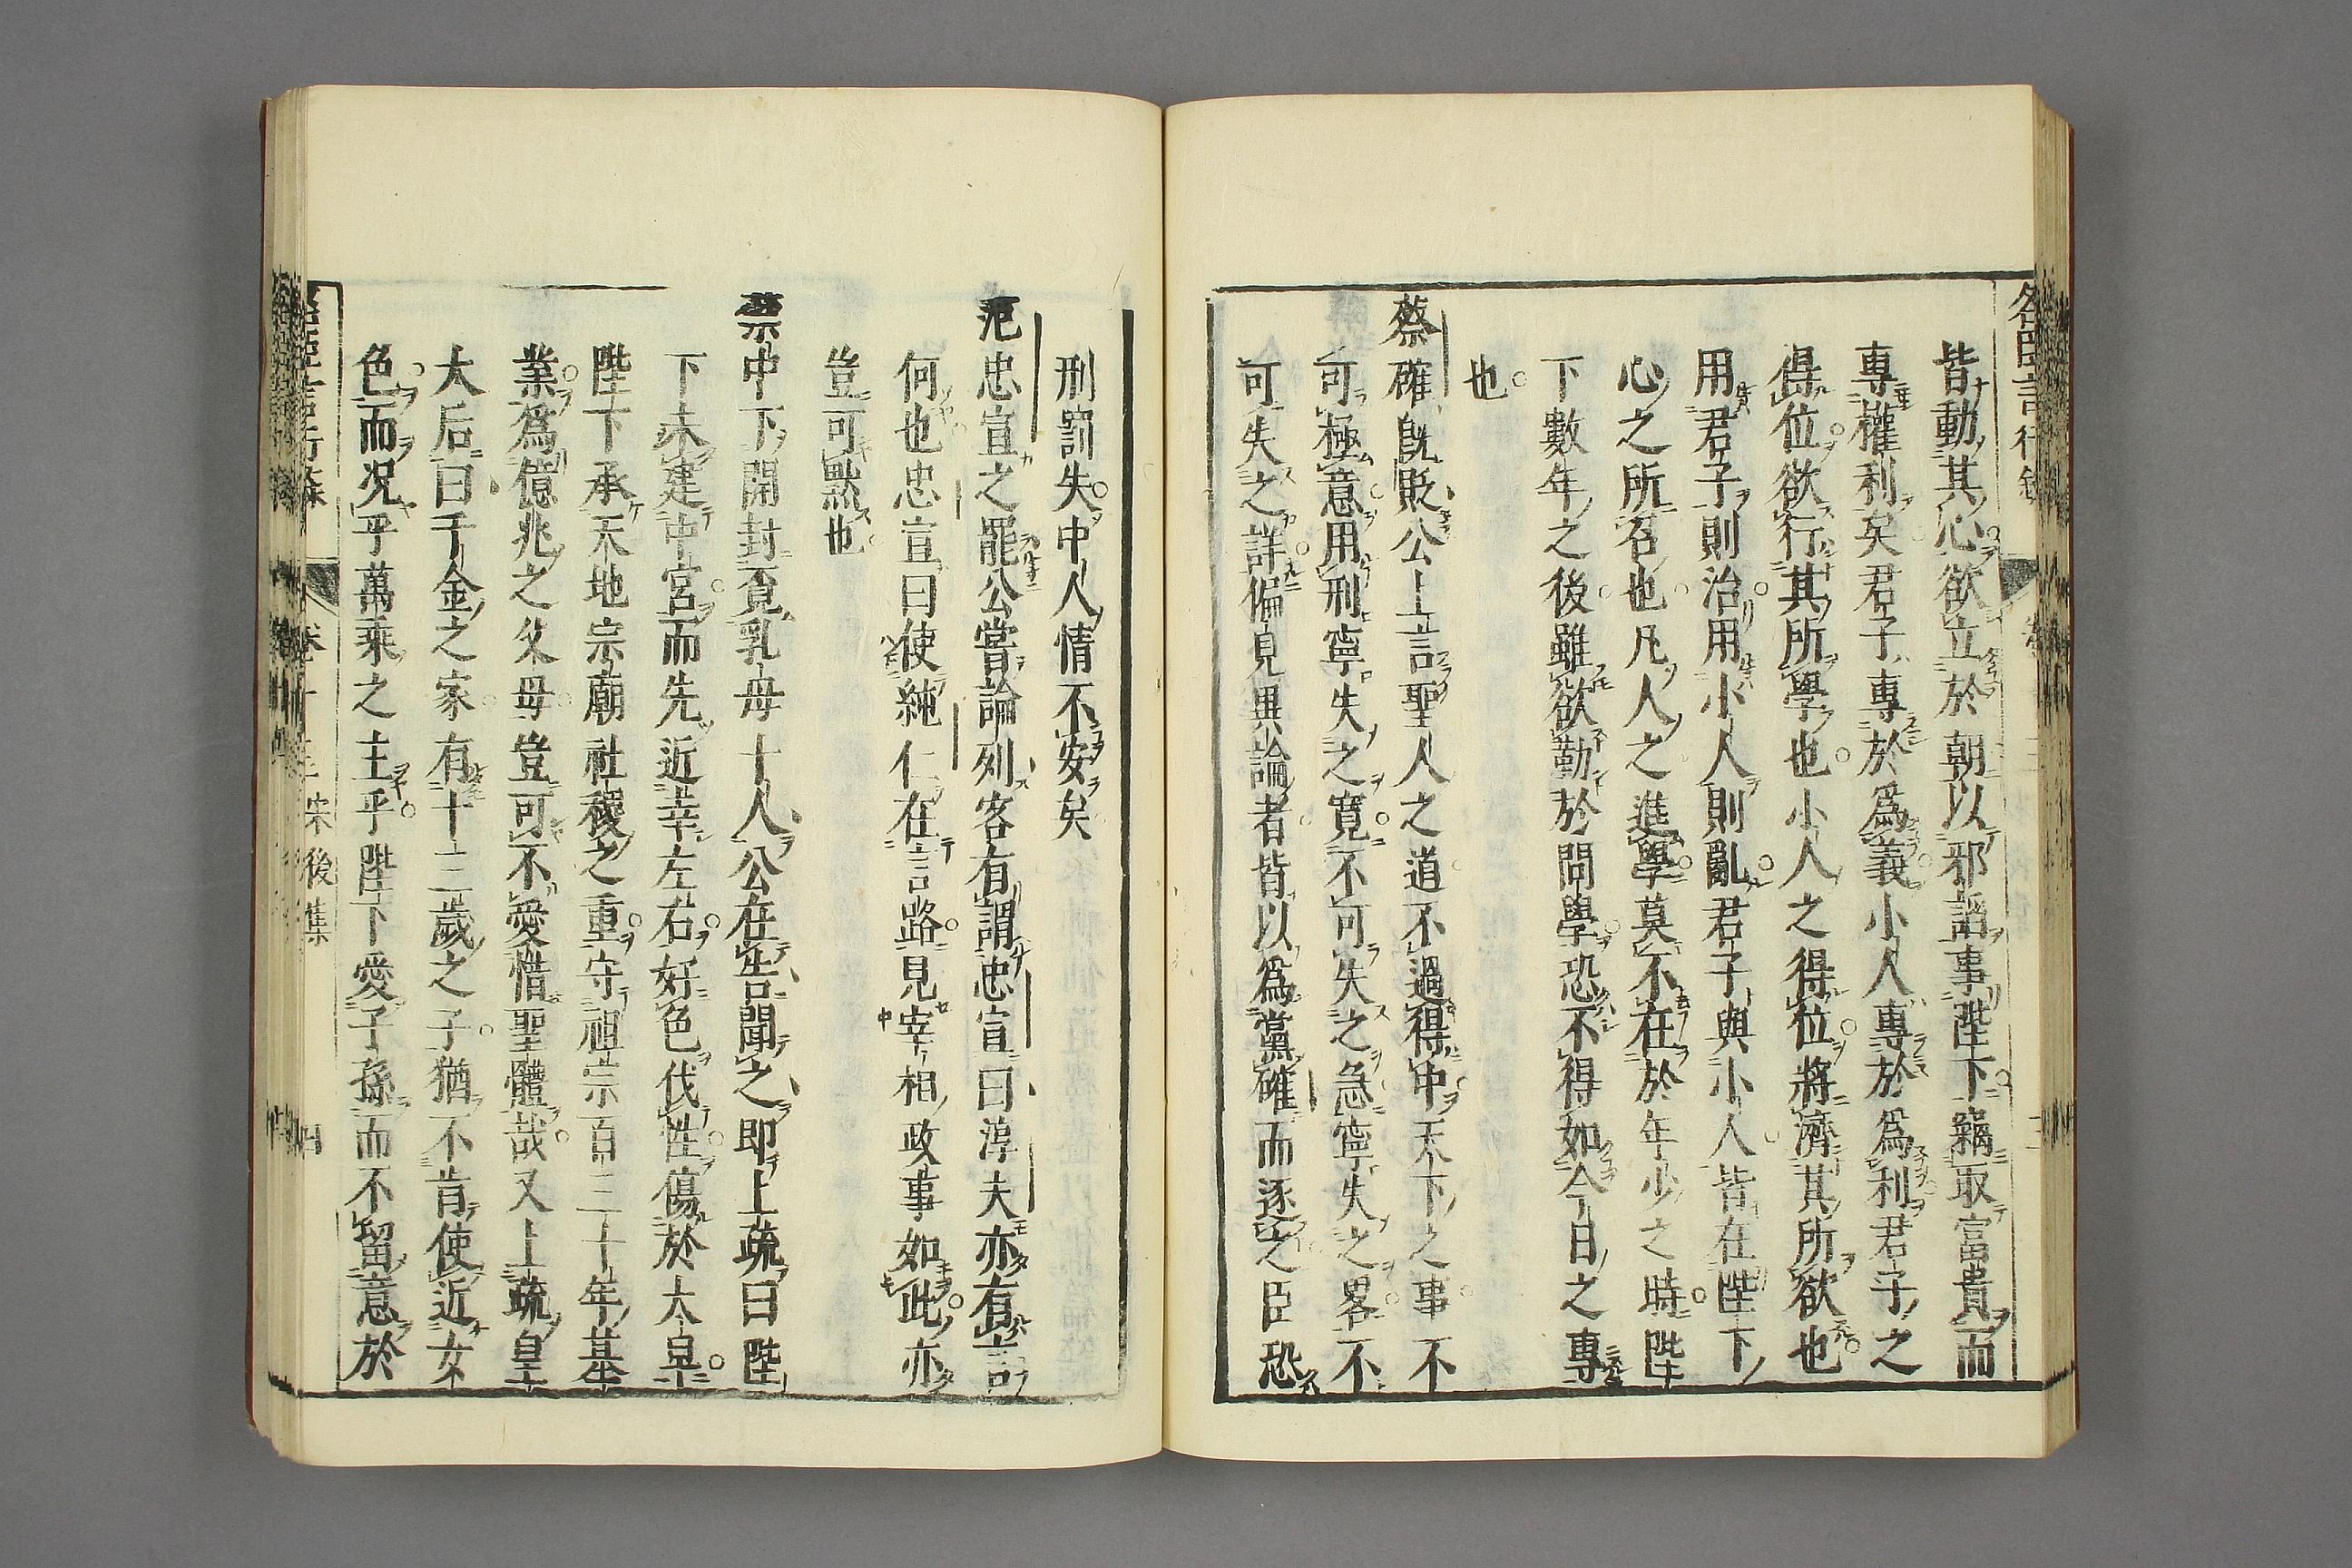 皆動其心欲立於朝以邪謟事陛下竊取富貴而
專權利矣君子專於爲義小人專於爲利君子之
得位欲行其所學也小人之得位將濟其所欲也
用君子則治用小人則亂君子與小人皆在陛下
心之所召也凡人之進學莫不在於年少之時陛
下數年之後雖欲勤於問學恐不得如今日之專
也
蔡確既貶公上言聖人之道不過得中天下之事不
可極意用刑寧失之寬不可失之急寧失之畧不
可失之詳偏見異論者皆以爲黨確而逐之臣恐
刑罰失中人情不安矣
范忠宣之罷公嘗論列客有謂忠宣曰淳夫亦有言
何也忠宣曰使純仁在言路見宰相政事如此亦
豈可默也
禁中下開封覓乳母十人公在告聞之即上疏曰陛
下未建中宮而先近幸左右好色伐性傷於太早
陛下承天地宗廟社稷之重守祖宗百三十年基
業爲億兆之父母豈可不愛惜聖體哉又上疏皇
太后曰千金之家有十三歲之子猶不肯使近女
色而况乎萬乘之主乎陛下愛子孫而不留意於
宋後集